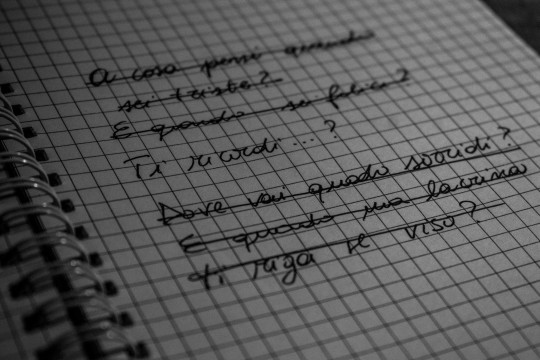 A cosa pensi quando
sei triste?
E quando sei felice?
Ti ricordi...?
Dove vai quando sorridi?
E quando una lacrima
ti riga il viso?